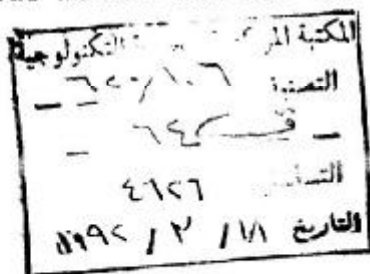 المكتبة المر التكنولوجية
التصنيف ٦٢٠/١٠٦
٦٤٢
التسلسل ٤٦٢٦
التاريخ ١٨ / ٣ / ١٩٩٢